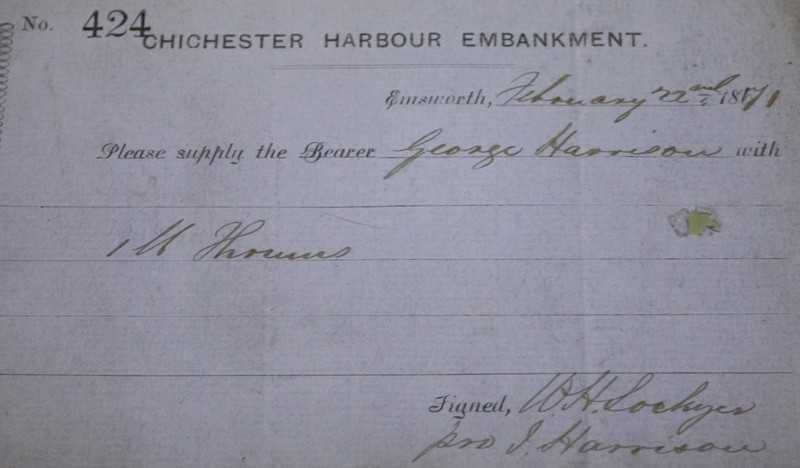 No. 424
CHICHESTER HARBOUR EMBANKMENT.
Emsworth, February 22nd, 1871
Please supply the Bearer George Harrison with
1 M
Signed, W. H. Lockyer
pro J. Harrison